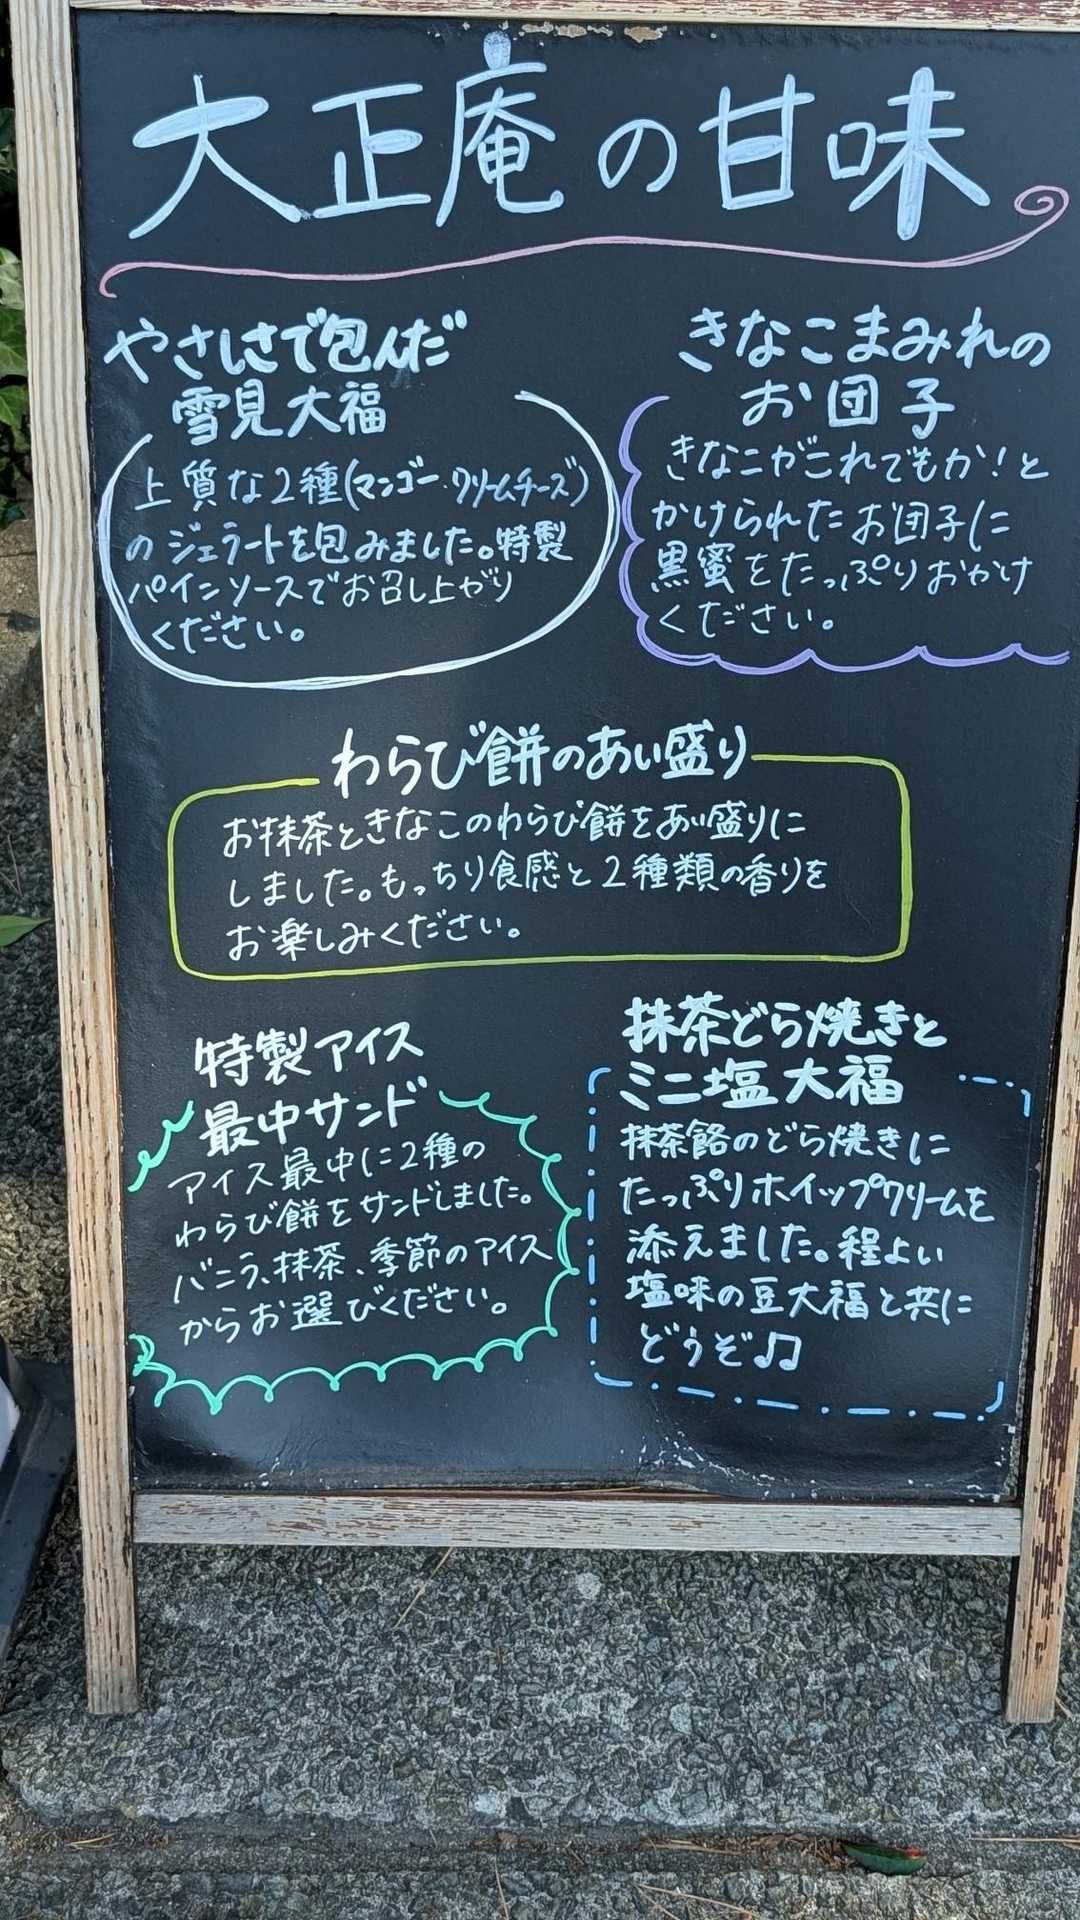 大正庵の甘味
やさしさで包んだ
雪見大福
上質な2種(マンゴー・クリームチーズ)
のジェラートを包みました。特製
パインソースでお召し上がり
ください。
きなこまみれの
お団子
きなこがこれでもか！と
かけられたお団子に
黒蜜をたっぷりおかけ
ください。
わらび餅のあい盛り
お抹茶ときなこのわらび餅をあい盛りに
しました。もっちり食感と2種類の香りを
お楽しみください。
特製アイス
最中サンド
アイス最中に2種の
わらび餅をサンドしました。
バニラ、抹茶、季節のアイス
からお選びください。
抹茶どら焼きと
ミニ塩大福
抹茶餡のどら焼きに
たっぷりホイップクリームを
添えました。程よい
塩味の豆大福と共に
どうぞ♫